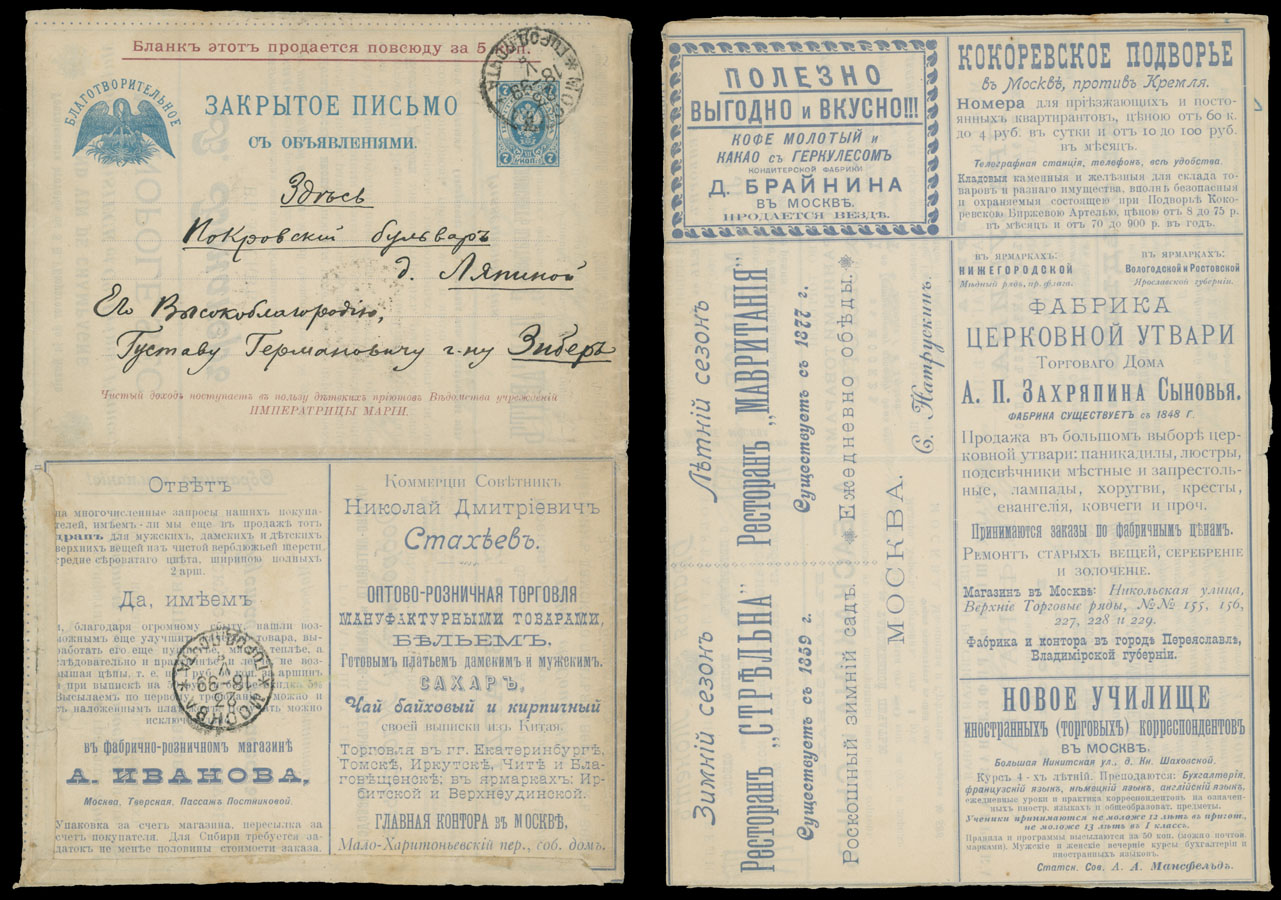 Бланкъ этотъ продается повсюду за 5 коп.
БЛАГОТВОРИТЕЛЬНОЕ
ЗАКРЫТОЕ ПИСЬМО
СЪ ОБЪЯВЛЕНІЯМИ.
7 7
МОСКВА
ГОРОД. ПОЧТА
Здѣсь
Покровскій бульваръ
д. Ляпиной
Его Высокоблагородію,
Густаву Германовичу г-ну Зиберъ
Чистый доходъ поступаетъ въ пользу дѣтскихъ пріютовъ Вѣдомства учрежденій
ИМПЕРАТРИЦЫ МАРІИ.
Отвѣтъ
на многочисленные запросы нашихъ покупа-
телей, имѣемъ-ли мы еще въ продажѣ тотъ
драпъ для мужскихъ, дамскихъ и дѣтскихъ
верхнихъ вещей изъ чистой верблюжьей шерсти
средне сѣроватаго цвѣта, шириною полныхъ
2 арш.
Да, имѣемъ
и, благодаря огромному сбыту, нашли воз-
можнымъ еще улучшить товара, вы-
работать его еще теплѣе, а
слѣдовательно и
вышая цѣны, т. е. руб. аршинъ
и при выпискѣ на
Высылаемъ по первому можно и
съ наложеннымъ можно
исключ
въ фабрично-розничномъ магазинѣ
А. ИВАНОВА,
Москва, Тверская, Пассажъ Постниковой.
Упаковка за счетъ магазина, пересылка за
счетъ покупателя. Для Сибири требуется за-
датокъ не менѣе половины стоимости заказа.
МОСКВА
ГОРОД. ПОЧТА
Коммерціи Совѣтникъ
Николай Дмитріевичъ
Стахѣевъ.
ОПТОВО-РОЗНИЧНАЯ ТОРГОВЛЯ
МАНУФАКТУРНЫМИ ТОВАРАМИ,
БѢЛЬЕМЪ,
Готовымъ платьемъ дамскимъ и мужскимъ.
САХАРЪ,
Чай байховый и кирпичный
своей выписки изъ Китая.
Торговля въ гг. Екатеринбургѣ,
Томскѣ, Иркутскѣ, Читѣ и Бла-
говѣщенскѣ; въ ярмаркахъ: Ир-
битской и Верхнеудинской.
ГЛАВНАЯ КОНТОРА ВЪ МОСКВѢ,
Мало-Харитоньевскій пер., соб. домъ.
ПОЛЕЗНО
ВЫГОДНО и ВКУСНО!!!
КОФЕ МОЛОТЫЙ и
КАКАО съ ГЕРКУЛЕСОМЪ
КОНДИТЕРСКОЙ ФАБРИКИ
Д. БРАЙНИНА
ВЪ МОСКВѢ.
ПРОДАЕТСЯ ВЕЗДѢ.
Зимній сезонъ Лѣтній сезонъ
Ресторанъ „СТРѢЛЬНА" Ресторанъ „МАВРИТАНІЯ"
Существуетъ съ 1859 г. Существуетъ съ 1877 г.
Роскошный зимній садъ. Ежедневно обѣды.
МОСКВА.
С. Натрускинъ.
КОКОРЕВСКОЕ ПОДВОРЬЕ
въ Москвѣ, противъ Кремля.
Номера для пріѣзжающихъ и посто-
янныхъ квартирантовъ, цѣною отъ 60 к.
до 4 руб. въ сутки и отъ 10 до 100 руб.
въ мѣсяцъ.
Телеграфная станція, телефонъ, всѣ удобства.
Кладовыя каменныя и желѣзныя для склада то-
варовъ и разнаго имущества, вполнѣ безопасныя
и охраняемыя состоящею при Подворьѣ Коко-
ревскою Биржевою Артелью, цѣною отъ 8 до 75 р.
въ мѣсяцъ и отъ 70 до 900 р. въ годъ.
ВЪ ЯРМАРКАХЪ:
НИЖЕГОРОДСКОЙ
Мѣдный рядъ, пр. флага.
ВЪ ЯРМАРКАХЪ:
Вологодской и Ростовской
Ярославской губерніи.
ФАБРИКА
ЦЕРКОВНОЙ УТВАРИ
Торговаго Дома
А. П. Захряпина Сыновья.
ФАБРИКА СУЩЕСТВУЕТЪ съ 1848 г.
Продажа въ большомъ выборѣ цер-
ковной утвари: паникадилы, люстры,
подсвѣчники мѣстные и запрестоль-
ные, лампады, хоругви, кресты,
евангелія, ковчеги и проч.
Принимаются заказы по фабричнымъ цѣнамъ.
Ремонтъ старыхъ вещей, серебреніе
и золоченіе.
Магазинъ въ Москвѣ: Никольская улица,
Верхніе Торговые ряды, №№ 155, 156,
227, 228 и 229.
Фабрика и контора въ городѣ Переяславлѣ,
Владимірской губерніи.
НОВОЕ УЧИЛИЩЕ
иностранныхъ (торговыхъ) корреспондентовъ
ВЪ МОСКВѢ.
Большая Никитская ул., д. Кн. Шаховской.
Курсъ 4-хъ лѣтній. Преподаются: Бухгалтерія,
французскій языкъ, нѣмецкій языкъ, англійскій языкъ,
ежедневные уроки и практика корреспондентовъ на означен-
ныхъ иностр. языкахъ и общеобразоват. предметы.
Ученики принимаются не моложе 12 лѣтъ въ пригот.,
не моложе 13 лѣтъ въ I классъ.
Правила и программы высылаются за 50 коп. (можно почтов.
марками). Мужскіе и женскіе вечерніе курсы бухгалтеріи и
иностранныхъ языковъ.
Статск. Сов. А. А. Мансфельдъ.